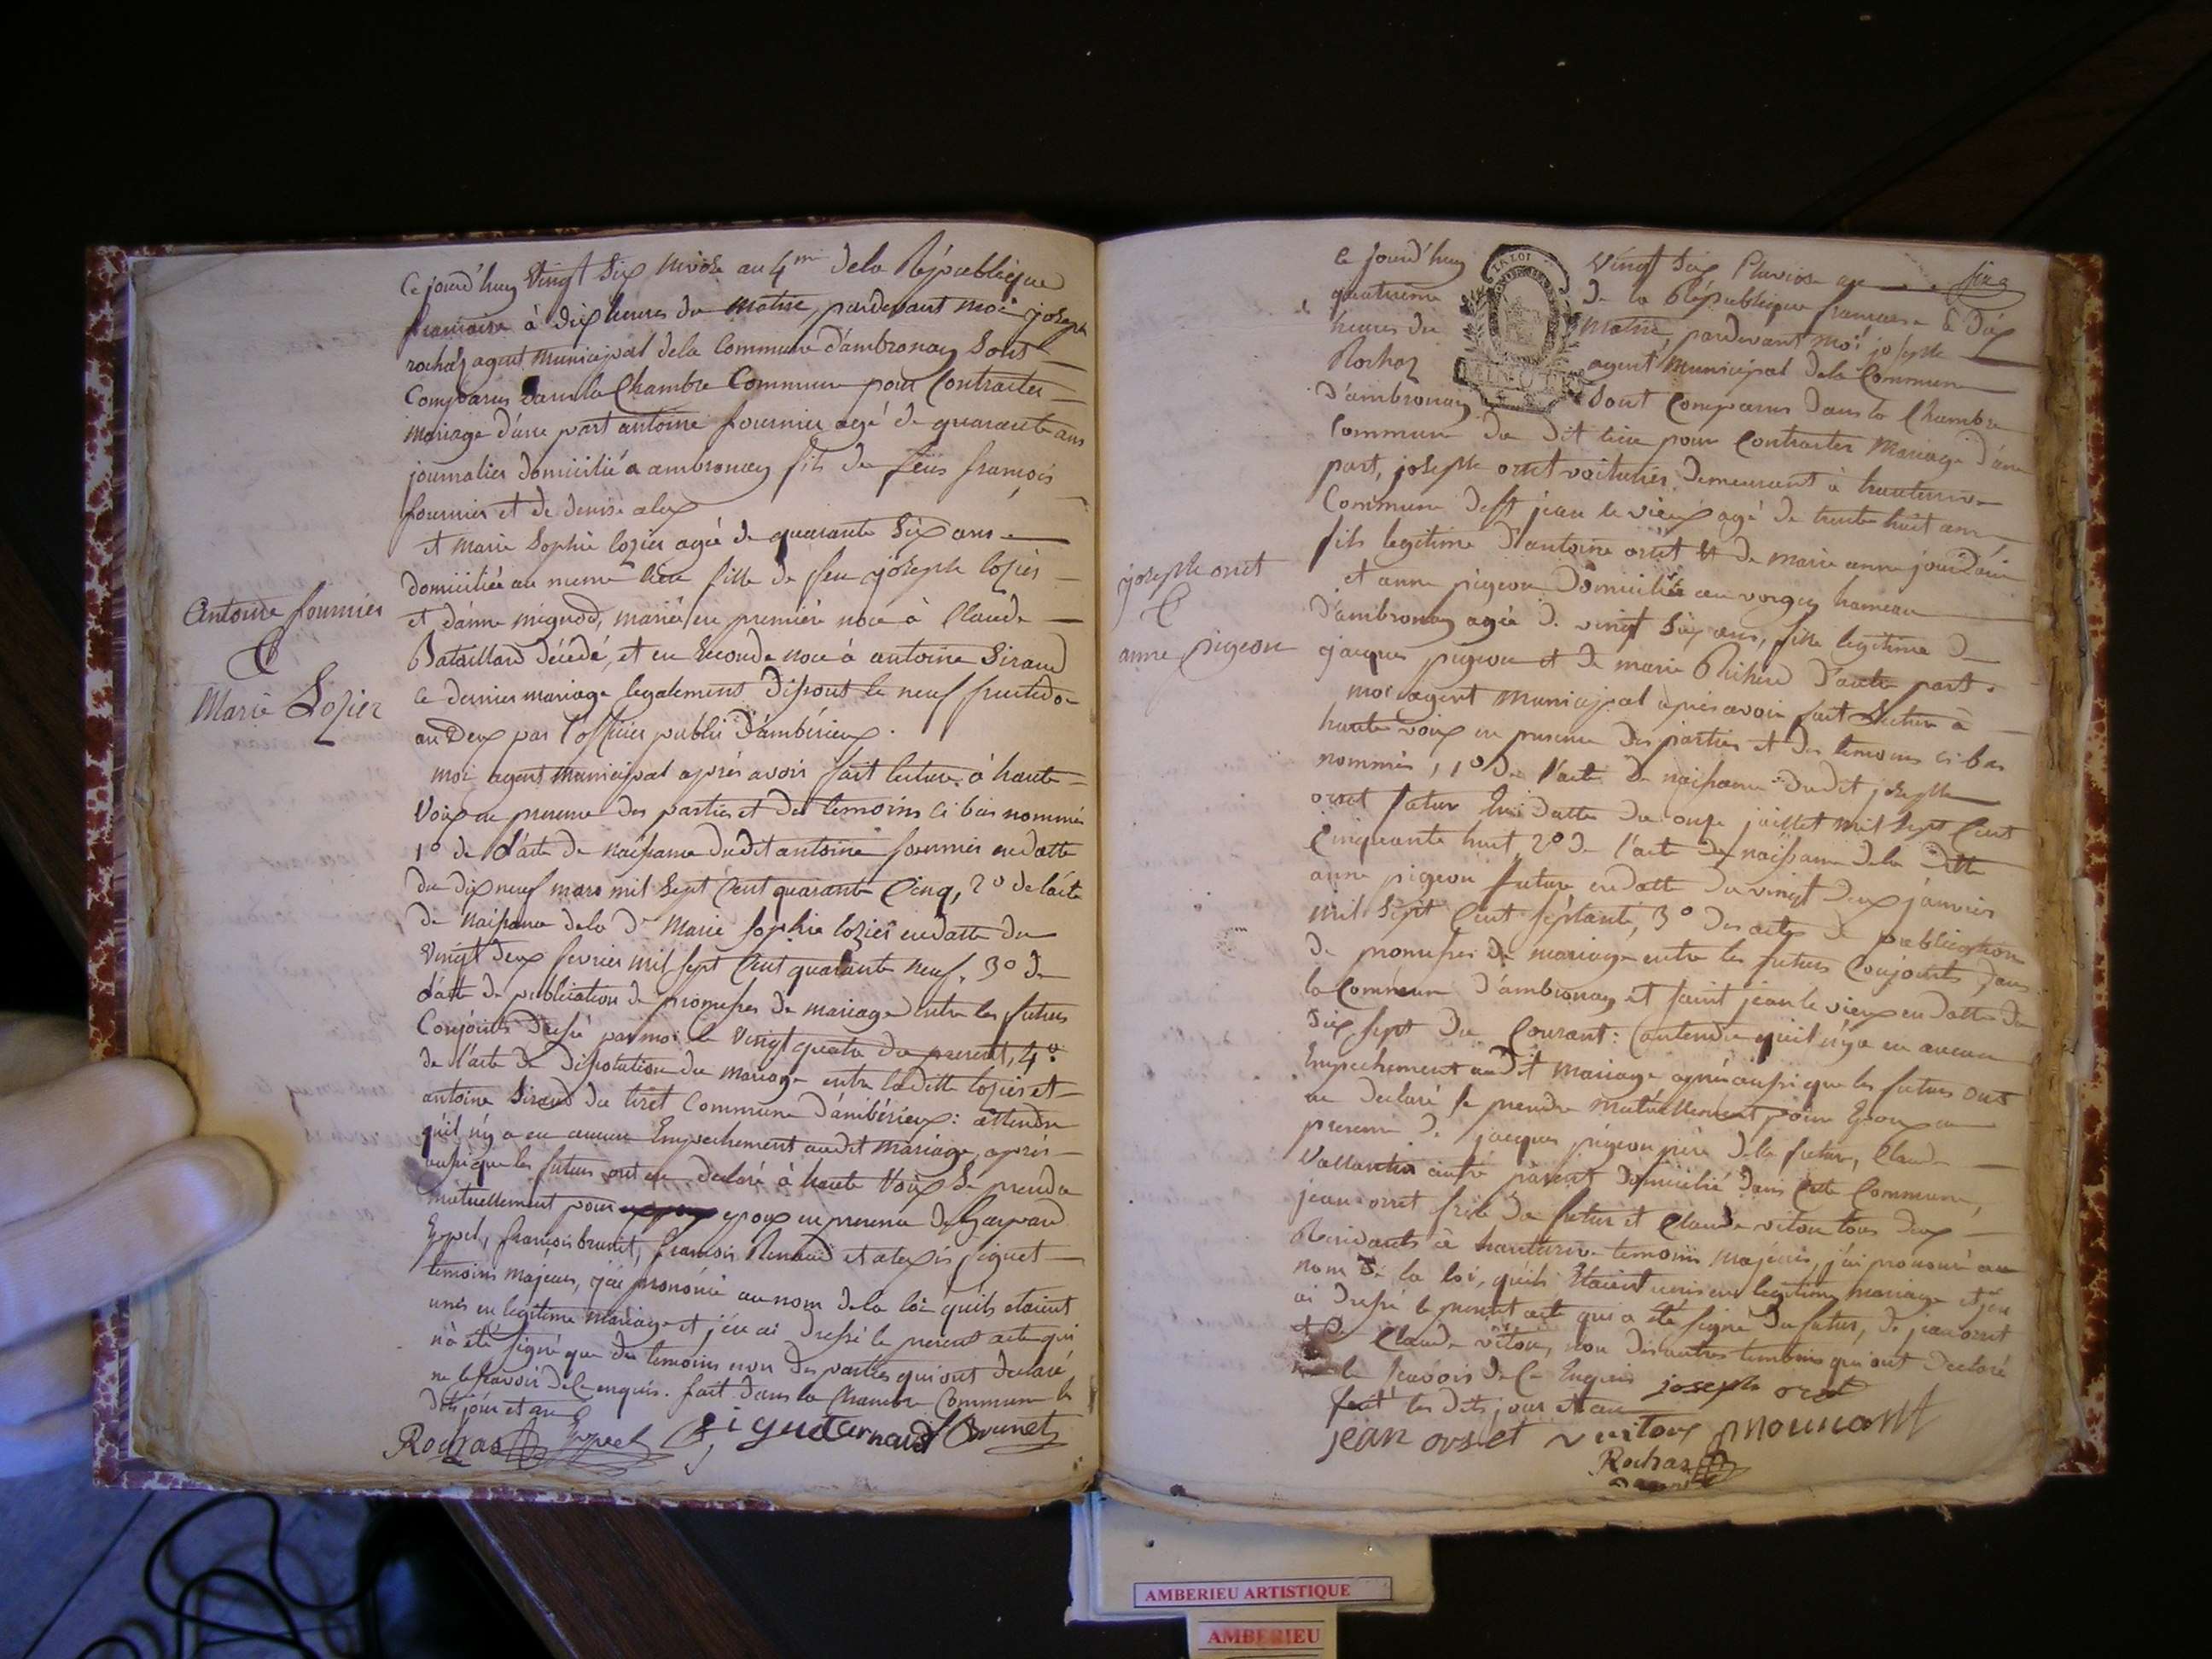 Ce jourd'huy Vingt Six nivose an 4me dela République
francaise à dix heures du matin, pardevant moi joseph
rochas agent municipal dela Commune d'ambronay Sont
Comparus dans la Chambre Commune pour Contracter
mariage d'une part antoine fournier agé de quarante ans
journalier domicilié a ambronay fils de feüs françois
fournier et de denise alex
et marie Sophie lozier agée de quarante Six ans
domiciliée au meme lieu fille de feu joseph lozier
et d'anne mignod, mariée en premiere noce à Claude
Bataillard décédé, et en seconde noce à antoine Siraud
ce dernier mariage legalement dissout le neuf fructidor
an Deux par l'officier public d'ambérieux.
Antoine fournier
&
Marie Lozier
moi agent municipal après avoir fait lecture à haute
Voix en presence des parties et des temoins ci bas nommés
1º de l'acte de naissance dudit antoine fournier en datte
du dix neuf mars mil Sept Cent quarante Cinq, 2º de l'acte
de naissance dela de Marie Sophie lozier en datte du
Vingt deux fevrier mil sept Cent quarante neuf. 3º de
l'acte de publication de promesses de mariage entre les futurs
Conjoints dressé par moi le Vingt quatre du present, 4º
de l'acte de dissolution du mariage entre laditte lozier et
antoine Siraud du tiret Commune d'ambérieux: attendu
qu'il n'y a eu aucun Empechement audit mariage, après
aussi que les futurs ont eu declaré à haute Voix Se prendre
mutuellement pour epoux en presence de Gaspard
Eypel, françois brunet, francois Renaud et alexis piguet
temoins majeurs, j'ai prononcé au nom dela loi qu'ils etaient
unis en legitime mariage et j'en ai dressé le present acte qui
n'a été signé que des temoins non des parties qui ont declaré
ne le scavoir de ce enquis. fait dans la Chambre Commune les
dits jour et an
Rochas Eypel piguet Brunet
Ce jourd'huy Vingt Six Pluviose an
quatrieme de la République francaise à Dix
heures du matin, pardevant moi joseph
Rochas agent municipal dela Commune
D'ambronay Sont Comparus dans la Chambre
LA LOI
Commune du dit lieu pour Contracter Mariage d'une
part, joseph orset voiturier demeurant à hauterive
Commune de St jean le vieux agé de trente huit ans
fils legitime d'antoine orset et de marie anne jourdain
et anne pigeon Domiciliée au vorgey hameau
D'ambronay agée de vingt Six ans, fille legitime de
jacques pigeon et de marie D'autre part.
joseph orset
&
anne pigeon
moi agent municipal après avoir fait Lecture à
haute voix en presence des parties et des temoins ci bas
nommés, 1º de l'acte de naissance dudit joseph
orset futur En datte du onze juillet mil Sept Cent
Cinquante huit 2º de l'acte de naissance dela ditte
anne pigeon future en datte du vingt deux janvier
mil Sept Cent Septante, 3º des actes de publication
de promesses de mariage entre les futurs Conjoints dans
la Commune d'ambronay et saint jean le vieux en datte du
dix sept du Courant: attendu qu'il n'y a eu aucun
Empechement audit mariage après aussi que les futurs ont
eu declaré se prendre mutuellement pour Epoux en
presence de jacques pigeon pere dela future, Claude
Vallantin autre parent domicilié dans cette Commune,
jean orset frere du futur et Claude vitou tous deux
Residants à hauterive temoins majeurs, j'ai prononcé au
nom de la loi, qu'ils Etaient unis en legitime mariage et j'en
ai dressé le present acte qui a été signé du futur, de jean orset
et de Claude vitou, non des autres temoins qui ont declaré
le scavoir de Ce Enquis joseph orset
fait les dits jour et an
jean orset
Rochas
AMBERIEU ARTISTIQUE
AMBERIEU